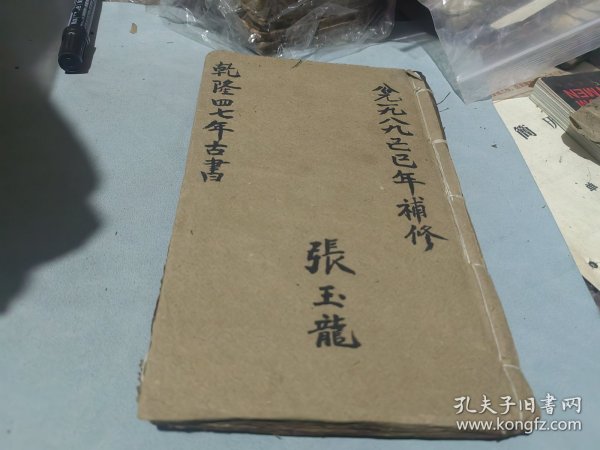 公元一九八九己巳年補修
張玉龍
乾隆四七年古書
簡
孔夫子旧书网
www.kongfz.com